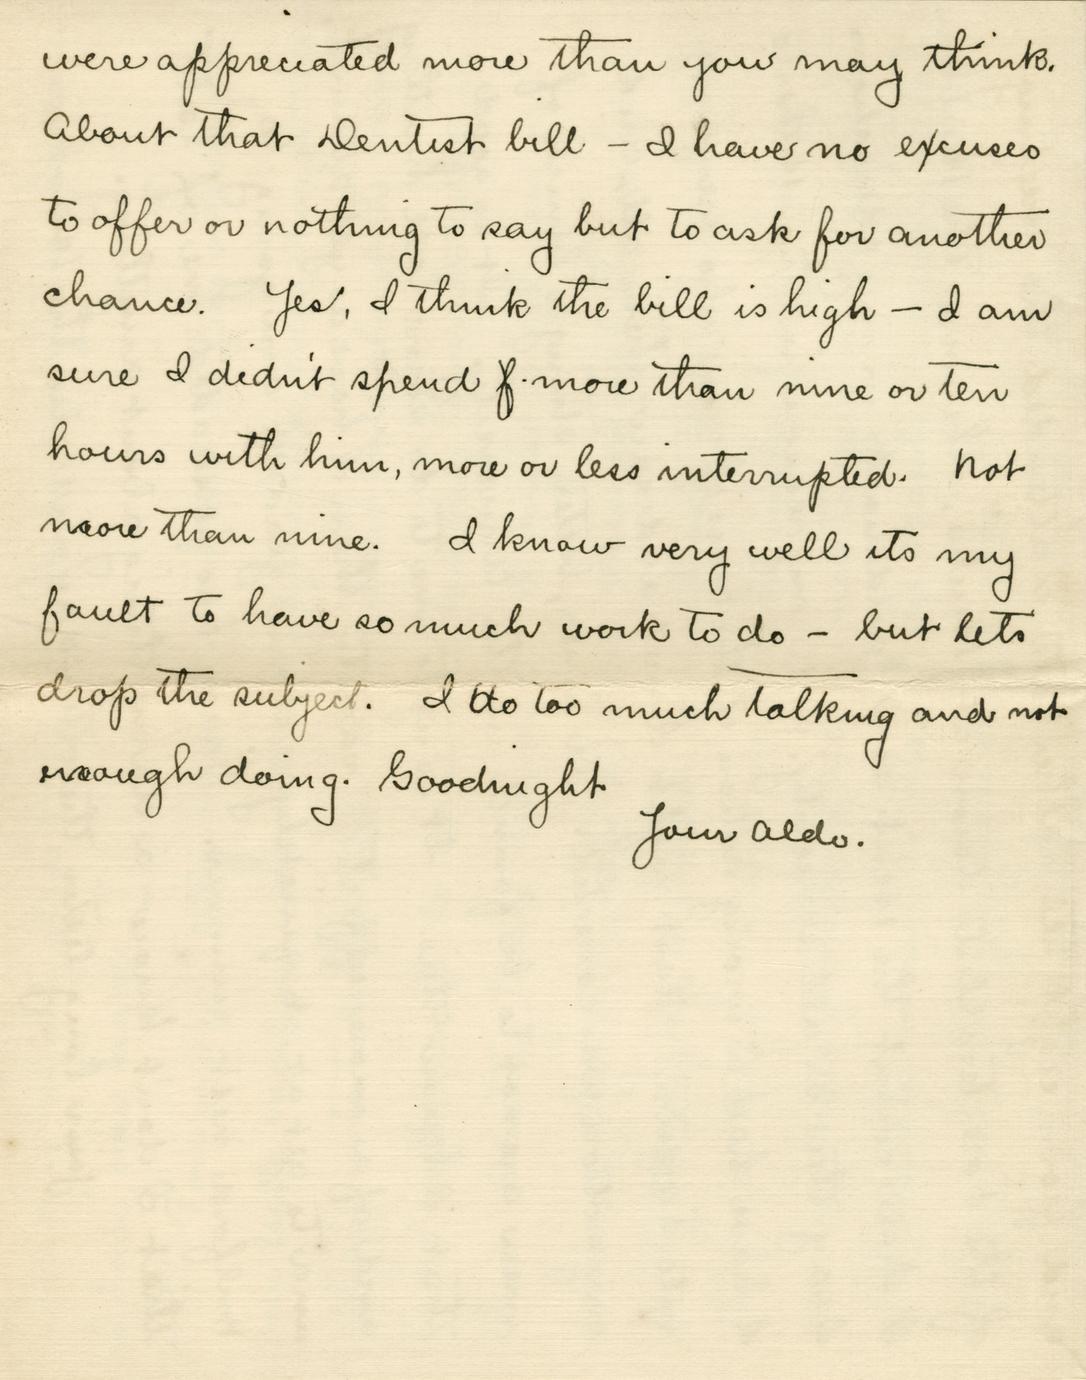 were appreciated more than you may think.
About that Dentist bill – I have no excuses
to offer or nothing to say but to ask for another
chance. Yes, I think the bill is high – I am
sure I didn't spend more than nine or ten
hours with him, more or less interrupted. Not
more than nine. I know very well its my
fault to have so much work to do – but lets
drop the subject. I do too much talking and not
enough doing. Goodnight
Your Aldo.